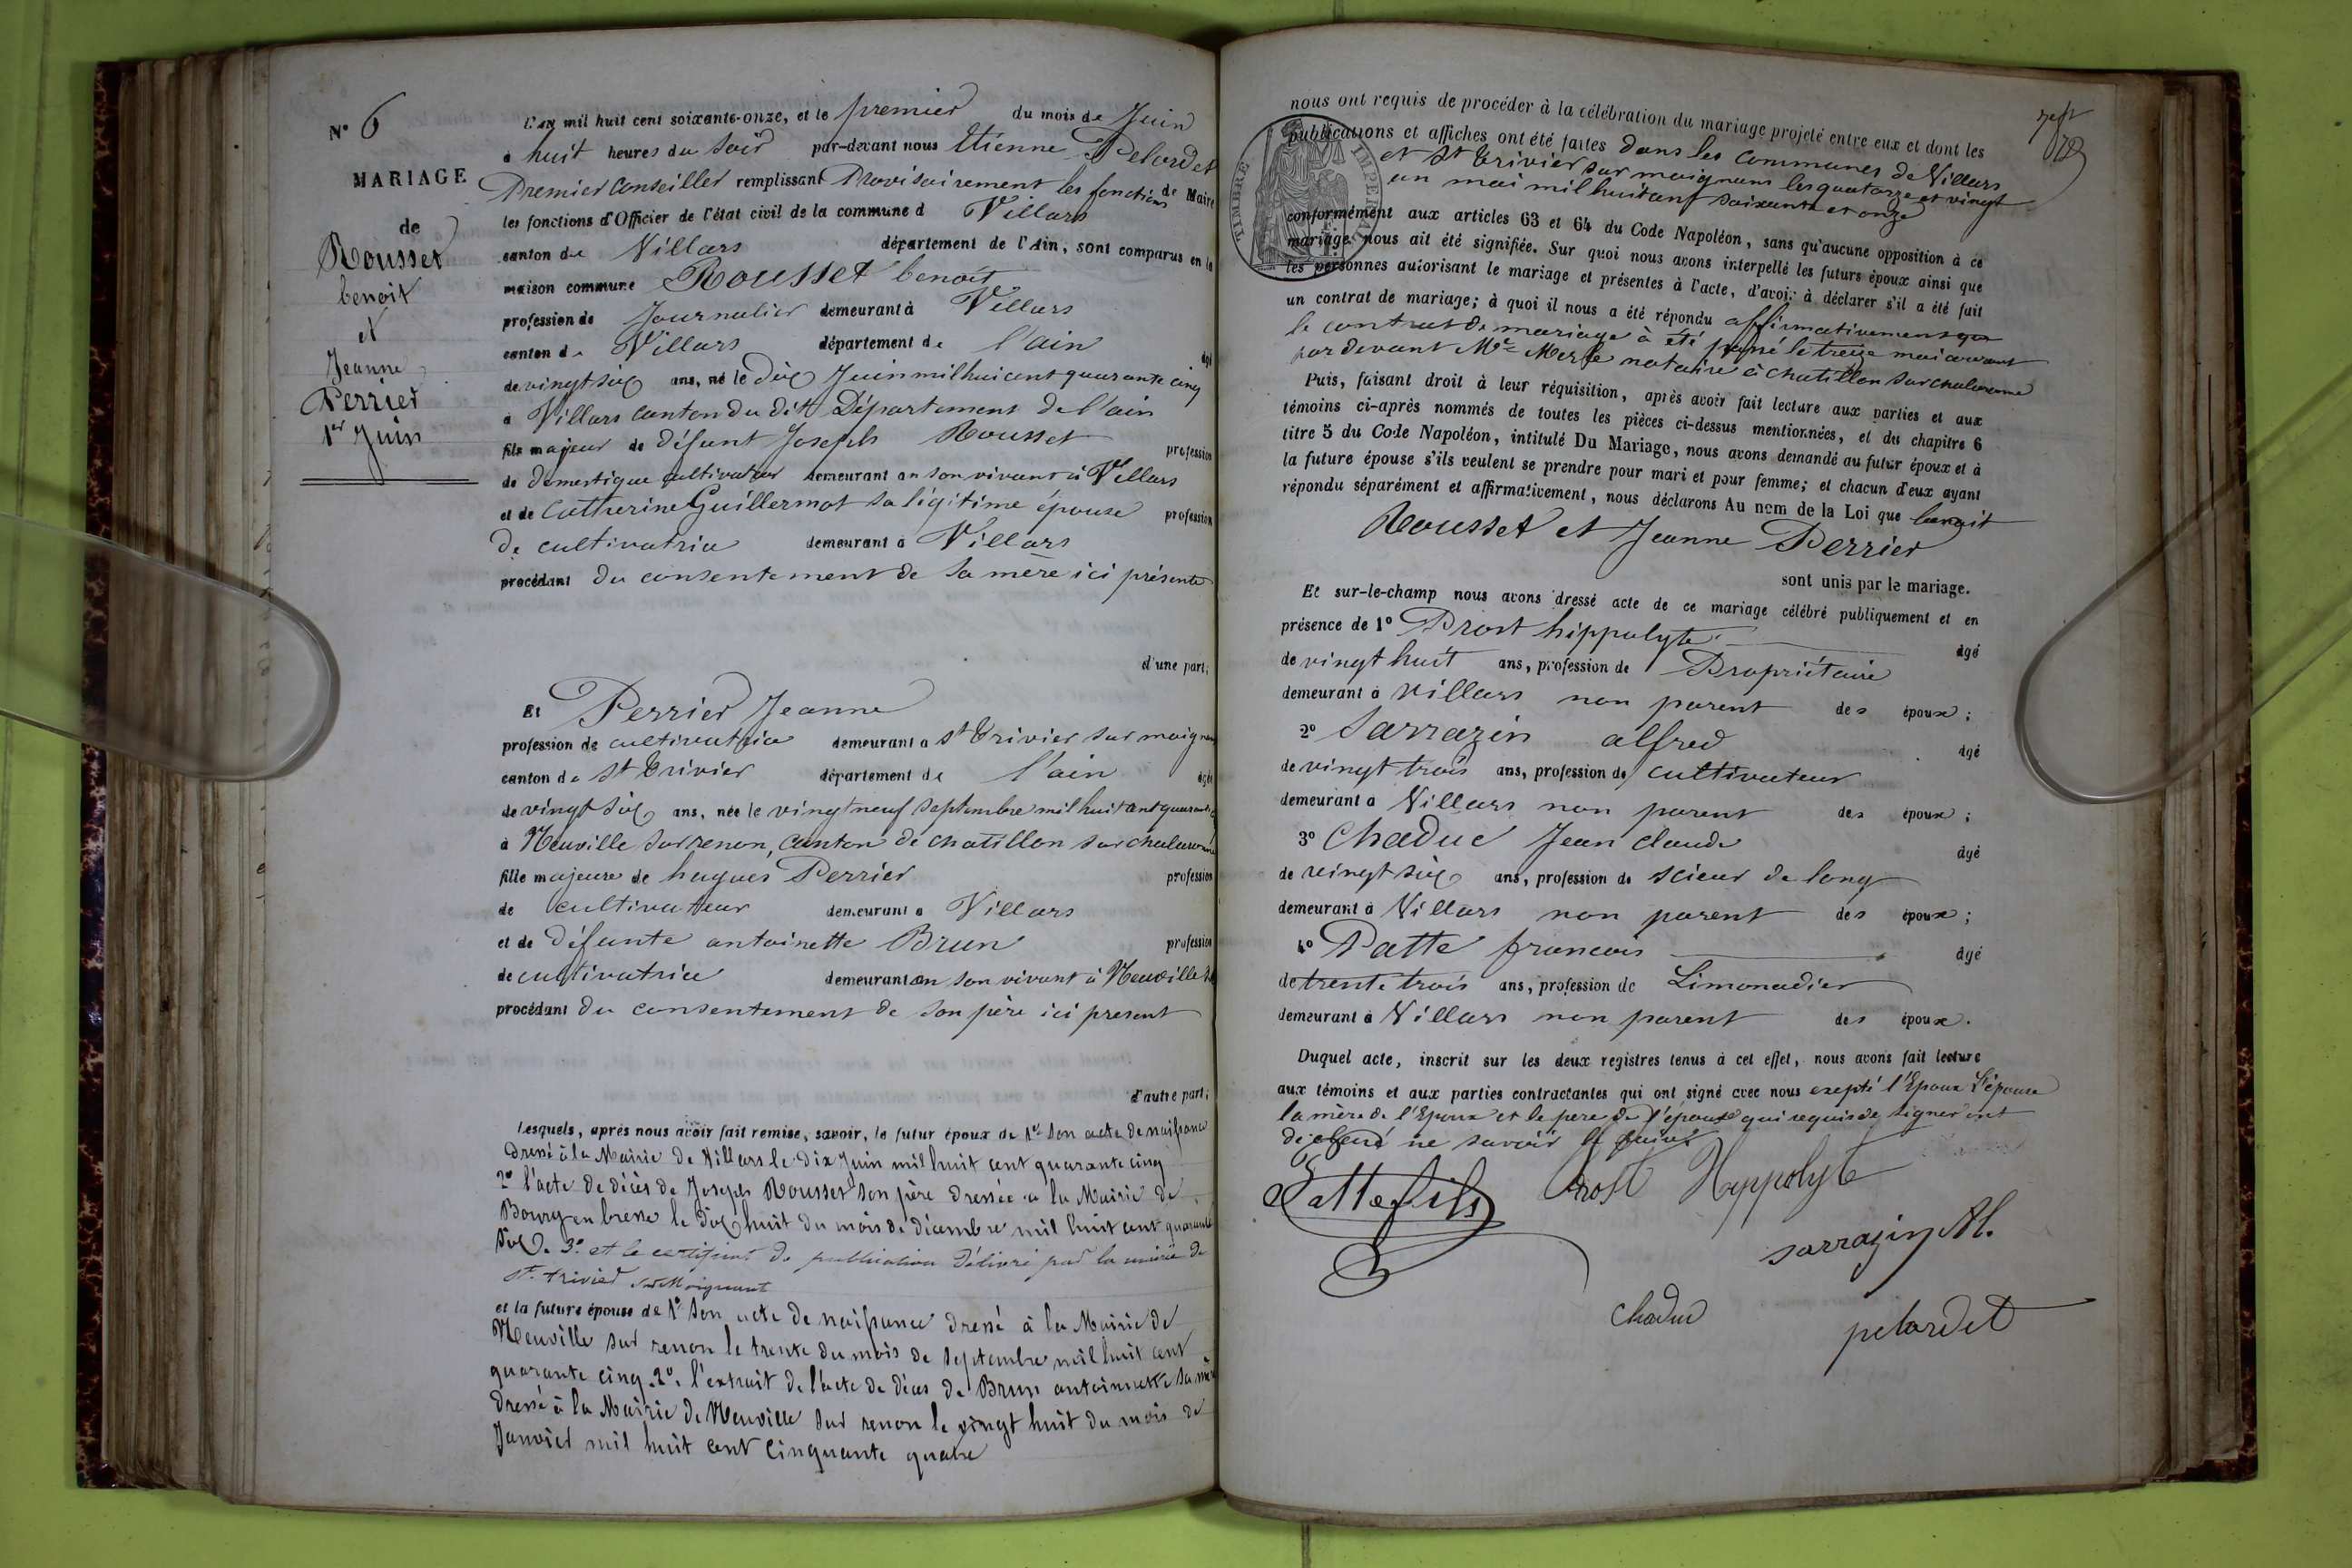 N° 6
MARIAGE
de
Rousset
benoit
et
Jeanne
Perrier
1er Juin
L'an mil huit cent soixante-onze, et le premier du mois de Juin
à huit heures du soir par-devant nous Etienne Pelardet
Premier Conseiller remplissant Provisoirement les fonctions de Maire
les fonctions d'Officier de l'état civil de la commune d Villars
canton de Villars département de l'Ain, sont comparus en la
maison commune Rousset benoit
profession de Journalier demeurant à Villars
canton de Villars département de l'ain âgé
de vingt six ans, né le dix Juin mil huit cent quarante cinq
à Villars canton du dit Département de l'ain
fils majeur de défunt Joseph Rousset profession
de domestique cultivateur demeurant en son vivant à Villars
et de Catherine Guillermot sa légitime épouse profession
De cultivatrice demeurant à Villars
procédant du consentement de sa mère ici présente
d'une part;
Et Perrier Jeanne
profession de cultivatrice demeurant à st Trivier sur moignans
canton de St Trivier département de l'ain âgée
de vingt six ans, née le vingt neuf septembre mil huit cent quarante
à Neuville sur renon, canton de chatillon sur chalaronne
fille majeure de hugues Perrier profession
de cultivateur demeurant à Villars
et de défunte antoinette Brun profession
de cultivatrice demeurant en son vivant à Neuville
procédant du consentement de son père ici present
d'autre part;
Lesquels, après nous avoir fait remise, savoir, le futur époux de 1° son acte de naissance
dressé à la Mairie de Villars le dix Juin mil huit cent quarante cinq
2° l'acte de décès de Joseph Rousset son père dressée a la Mairie de
Bourg en bresse le dix huit du mois de décembre mil huit cent quarante
six. 3° et le certificat de publication délivré par la mairie de
st. trivier sur Moignant
et la future épouse de 1° son acte de naissance dressé à la Mairie de
Neuville sur renon le trente du mois de septembre mil huit cent
quarante cinq. 2°. l'extrait de l'acte de décès de Brun antoinette sa mère
dressé à la Mairie de Neuville sur renon le vingt huit du mois de
Janvier mil huit cent cinquante quatre
nous ont requis de procéder à la célébration du mariage projeté entre eux et dont les
publications et affiches ont été faites dans les communes de Villars
et st trivier sur moignans les quatorze et vingt
un mai mil huit cent soixante et onze
TIMBRE IMPERIAL
conformément aux articles 63 et 64 du Code Napoléon, sans qu'aucune opposition à ce
mariage nous ait été signifiée. Sur quoi nous avons interpellé les futurs époux ainsi que
les personnes autorisant le mariage et présentes à l'acte, d'avoir à déclarer s'il a été fait
un contrat de mariage; à quoi il nous a été répondu affirmativement que
le contrat de mariage à été passé le treize mai courant
par devant Me Merle notaire à chatillon sur chalaronne
Puis, faisant droit à leur réquisition, après avoir fait lecture aux parties et aux
témoins ci-après nommés de toutes les pièces ci-dessus mentionnées, et du chapitre 6
titre 5 du Code Napoléon, intitulé Du Mariage, nous avons demandé au futur époux et à
la future épouse s'ils veulent se prendre pour mari et pour femme; et chacun d'eux ayant
répondu séparément et affirmativement, nous déclarons Au nom de la Loi que benoit
Rousset et Jeanne Perrier
sont unis par le mariage.
Et sur-le-champ nous avons dressé acte de ce mariage célébré publiquement et en
présence de 1° Prost hippolyte âgé
de vingt huit ans, profession de Propriétaire
demeurant à Villars non parent des époux;
2° Sarrazin alfred âgé
de vingt trois ans, profession de cultivateur
demeurant à Villars non parent des époux;
3° Chaduc Jean claude âgé
de vingt six ans, profession de scieur de long
demeurant à Villars non parent des époux;
4° Patte francois âgé
de trente trois ans, profession de Limonadier
demeurant à Villars non parent des époux.
Duquel acte, inscrit sur les deux registres tenus à cet effet, nous avons fait lecture
aux témoins et aux parties contractantes qui ont signé avec nous exepté l'Epoux l'épouse
la mère de l'Epoux et le pere de l'épouse qui requis de signer ont
déclaré ne savoir le faire
Patte fils Prost Hyppolyte
sarrazin Al.
Chaduc
pelardet